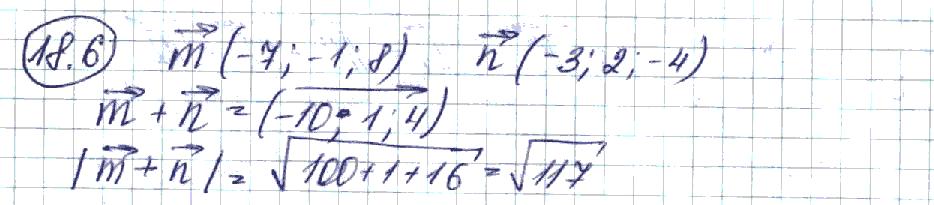 18.6 m⃗ (-7; -1; 8) n⃗ (-3; 2; -4)
m⃗ + n⃗ = (-10; 1; 4)
|m⃗ + n⃗| = √100+1+16 = √117